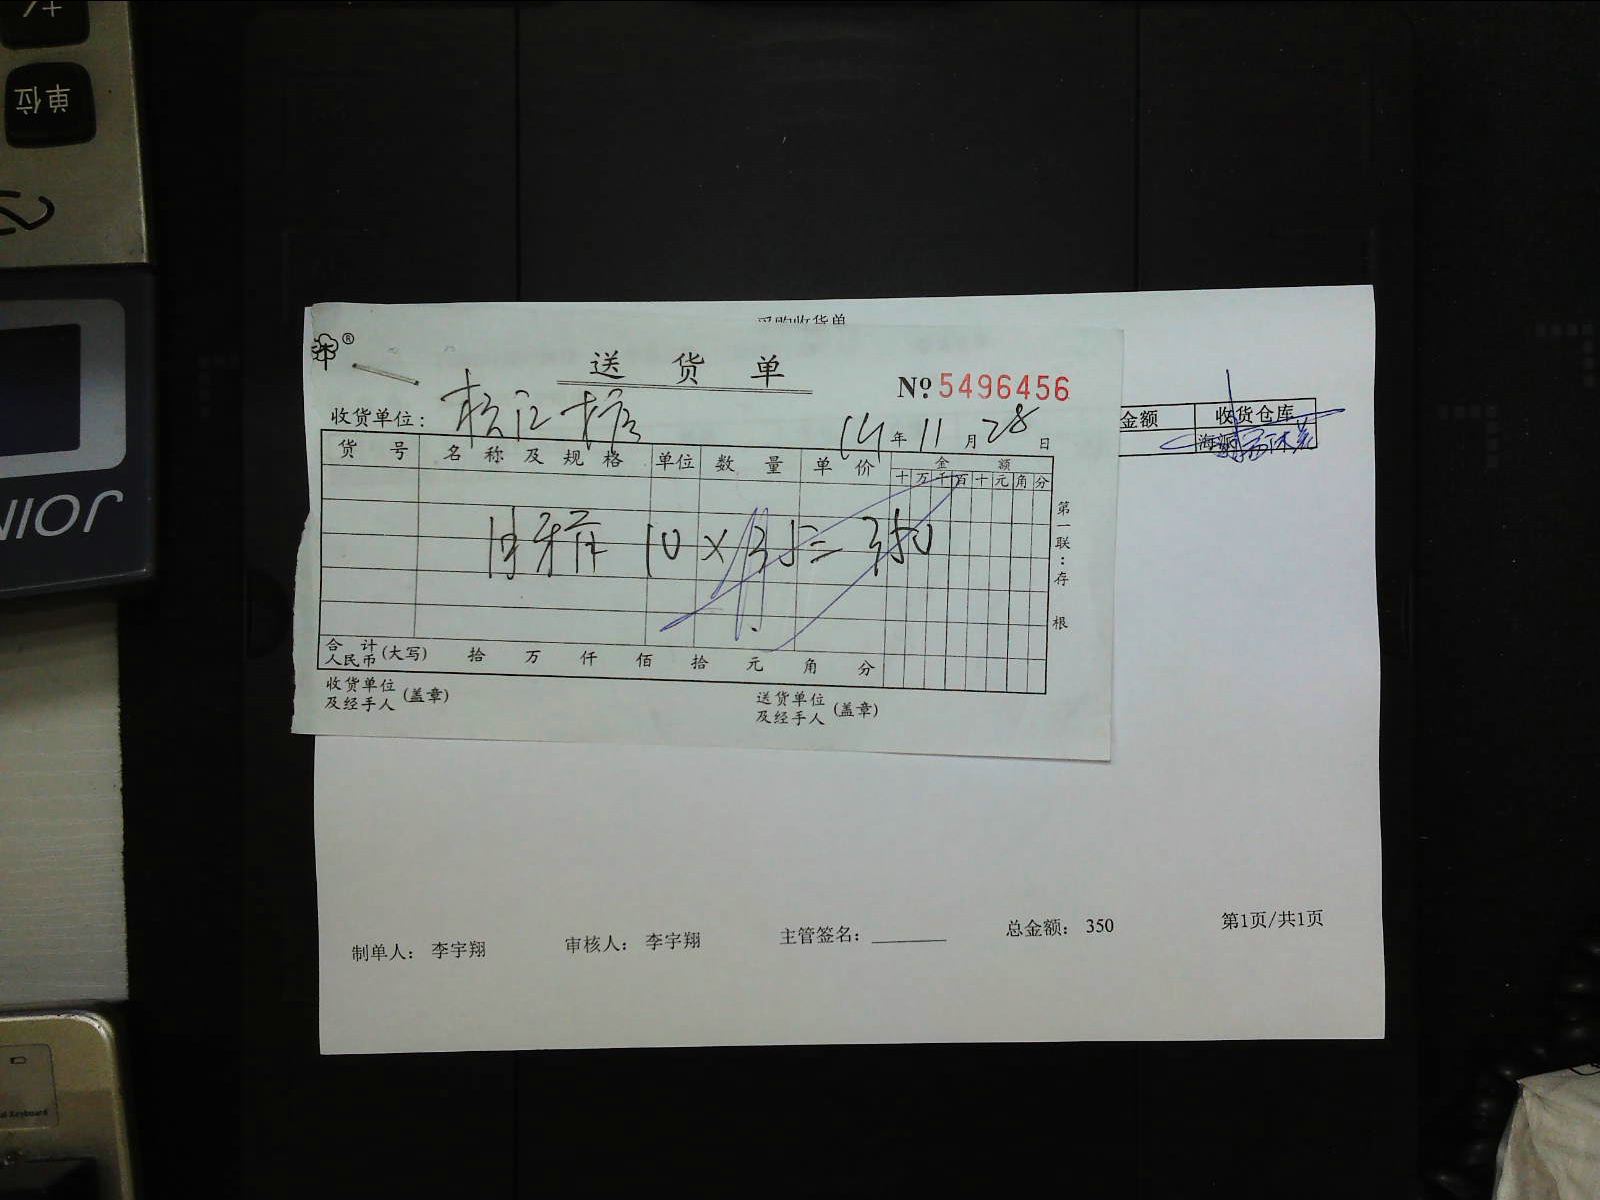 单位
采购收货单
®
送货单
№ 5496456
收货单位:
14年11月28日
金额 收货仓库
海
货号 名称及规格 单位 数量 单价 金额
十万千百十元角分
10×35=350
第一联:存根
合计人民币(大写) 拾 万 仟 佰 拾 元 角 分
收货单位及经手人(盖章) 送货单位及经手人(盖章)
制单人: 李宇翔 审核人: 李宇翔 主管签名: 总金额: 350 第1页/共1页
JOIN